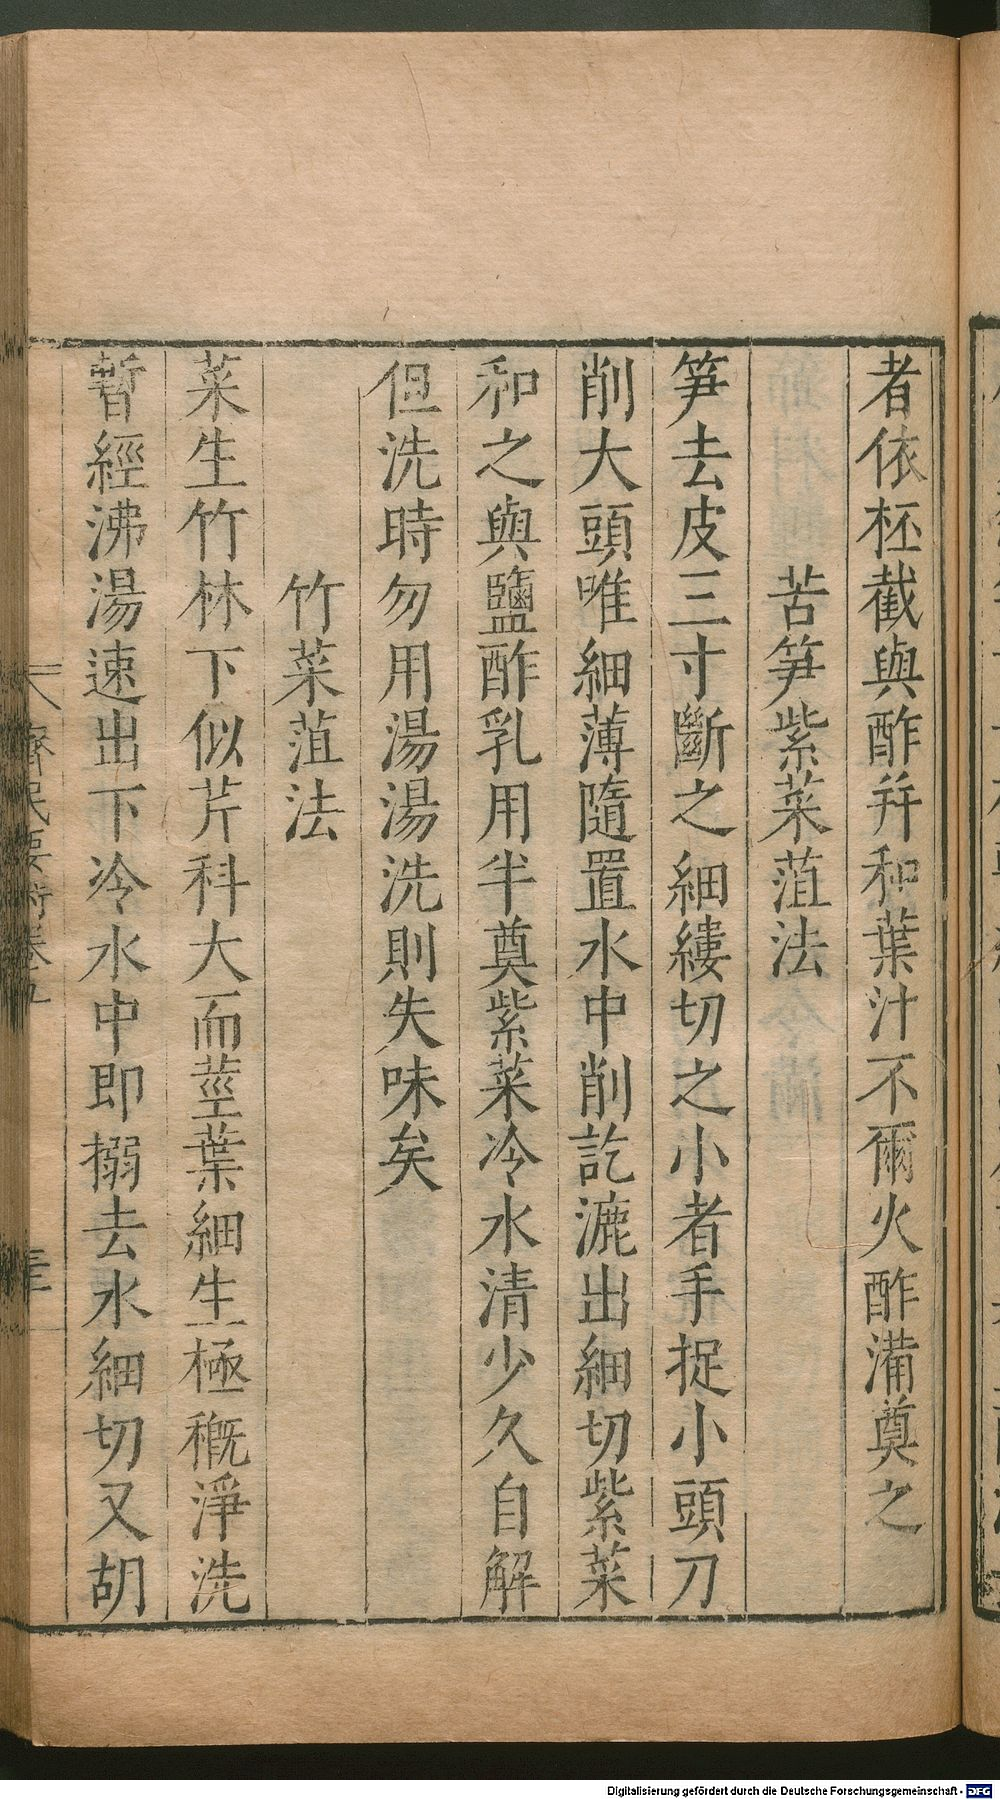 者依柸截與酢并和葉汁不爾火酢滿奠之
苦笋紫菜菹法
笋去皮三寸斷之細縷切之小者手捉小頭刀
削大頭唯細薄隨置水中削訖漉出細切紫菜
和之與鹽酢乳用半奠紫菜冷水清少久自解
但洗時勿用湯湯洗則失味矣
竹菜菹法
菜生竹林下似芹科大而莖葉細生極穊淨洗
暫經沸湯速出下冷水中即搦去水細切又胡
齊民要術卷九
Digitalisierung gefördert durch die Deutsche Forschungsgemeinschaft - DFG